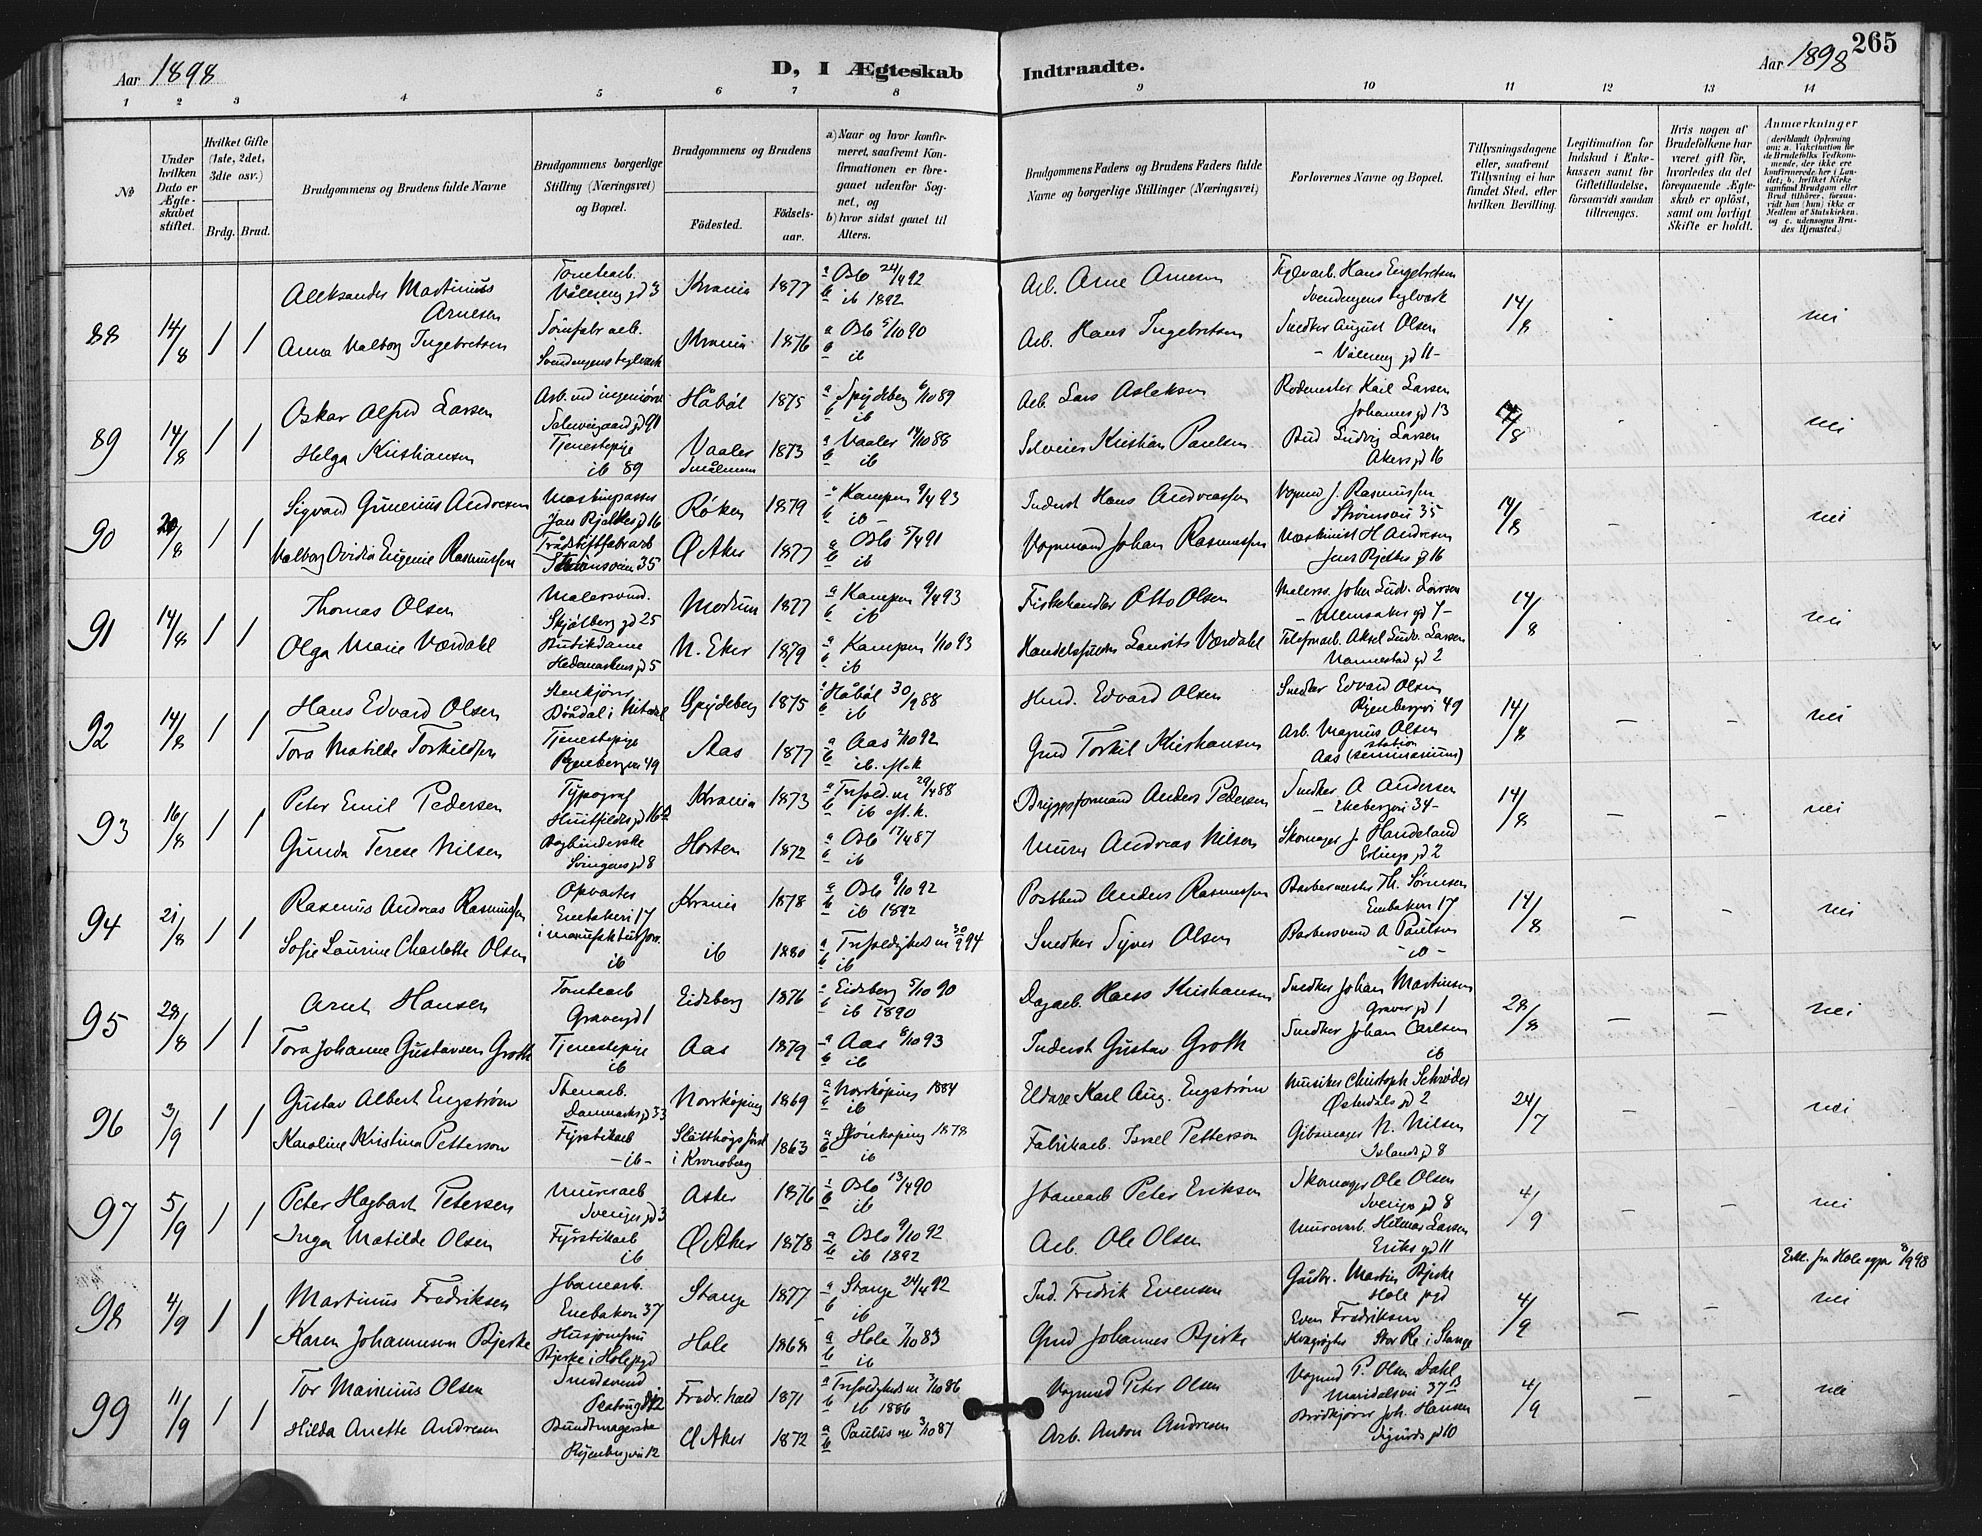 Aar 1898
D, I Ægteskab Indtraadte.
Aar 1898
265
1 2 3 4 5 6 7 8 9 10 11 12 13 14
No
Under hvilken Dato er Ægteskabet stiftet.
Hvilket Gifte (1ste, 2det, 3die osv.)
Brdg. Brud.
Brudgommens og Brudens fulde Navne
Brudgommens borgerlige Stilling (Næringsvei) og Bopæl.
Brudgommens og Brudens
Fødested.
Fødselsaar.
a) Naar og hvor konfirmeret, saafremt Konfirmationen er foregaaet udenfor Sognet, og
b) hvor sidst gaaet til Alters.
Brudgommens Faders og Brudens Faders fulde Navne og borgerlige Stillinger (Næringsvei)
Forlovernes Navne og Bopæl.
Tillysningsdagene eller, saafremt Tillysning ei har fundet Sted, efter hvilken Bevilling.
Legitimation for Indskud i Enkekassen samt for Giftetilladelse, forsaavidt saadan tiltrænges.
Hvis nogen af Brudefolkene har været gift før, hvorledes da det foregaaende Ægteskab er opløst, samt om lovligt Skifte er holdt.
Anmærkninger
88 14/8 1 1
Aleksander Martinius Arnesen
Tomtearb. Vålereng gd 3
Krania 1877
a Oslo 24/4 92
b ib 1892
Arb. Arne Arnesen
Teglvarb. Hans Engebretsen
Svendengens teglværk
14/8
nei
Anna Valborg Ingebretsen
Svendengens teglværk
Krania 1876
a Oslo 5/10 90
b ib
Arb. Hans Ingebretsen
Snedker August Olsen
Vålereng gd 11
89 14/8 1 1
Oskar Alfred Larsen
Håbøl 1875
a Spydeberg 6/10 89
b ib
Arb. Lars Aslaksen
Rodemester Karl Larsen
Johannes gd 13
14/8
nei
Helga Kristiansen
Tjenestepige ib 89
Vaaler Smålenene 1873
a Vaaler 14/10 88
b ib
Selveier Kristian Paulsen
Bud Ludvig Larsen
Akers gd 16
90 20/8 1 1
Sigvard Gunerius Andresen
Maskinpasser
Jens Bjelkes gd 16
Røken 1879
a Kampen 9/4 93
b ib
Inderst Hans Andreassen
Vogmd J. Rasmussen
Strømsvei 35
14/8
nei
Valborg Ovidia Eugenie Rasmussen
Trådstiftfabrarb
Strømsveien 35
Ø Aker 1877
a Oslo 5/4 91
b ib
Vognmand Johan Rasmussen
Maskinist H Andresen
Jens Bjelkes gd 16
91 14/8 1 1
Thomas Olsen
Malersvend.
Skjølberg gd 25
Modum 1877
a Kampen 9/4 93
b ib
Fiskehandler Otto Olsen
Malersv. Johan Ludv. Larsen
14/8
nei
Olga Marie Værdahl
Butikdame
Hedemarkens gd 5
N. Eker 1879
a Kampen 1/10 93
b ib
Laurits Værdahl
Telefonarb. Aksel Ludv. Larsen
Nannestad gd 2
92 14/8 1 1
Hans Edvard Olsen
Spydeberg 1875
a Håbøl 30/9 88
b ib
Husd. Edvard Olsen
Snedker Edvard Olsen
Ryenbergvei 49
14/8
nei
Tora Matilde Torkildsen
Tjenestepige
Ryenbergvei 49
Aas 1877
a Aas 2/10 92
b ib. aft. k
Gmd Torkil Kristiansen
Arb. Magnus Olsen
Aas station (seminarium)
93 16/8 1 1
Peter Emil Pedersen
Typograf
Huitfeldts gd 16
Krania 1873
a Trefold.m 29/4 88
b ib aft. k.
Bryggeformand Anders Pedersen
Snedker A Andersen
Ekebergvei 34
14/8
nei
Gunda Terese Nilsen
Bogbinderske
Svingens gd 8
Horten 1872
a Oslo 17/4 87
b ib
Murer Andreas Nilsen
Skomager J Handeland
Erlings gd 2
94 21/8 1 1
Rasmus Andreas Rasmussen
Opvarter
Enebakvei 17
Krania 1878
a Oslo 9/10 92
b ib 1892
Postbud Anders Rasmussen
Barbermester Th. Sørensen
Enebakvei 17
14/8
nei
Sofie Laurine Charlotte Olsen
i manufakturforr. ib
ib 1880
a Trefoldigheds m 30/9 94
b ib
Snedker Syver Olsen
Barbersvend A Paulsen
ib
95 28/8 1 1
Arnt Hansen
Tomtearb
Graver gd 1
Eidsberg 1876
a Eidsberg 5/10 90
b ib 1890
Dagarb. Hans Kristiansen
Snedker Johan Martinsen
Graver gd 1
28/8
nei
Tora Johanne Gustavsen Groth
Tjenestepige ib
Aas 1879
a Aas 8/10 93
b ib
Inderst Gustav Groth
Snedker Johan Carlsen
ib
96 3/9 1 1
Gustav Albert Engström
Stenarb.
Danmarks gd 33
Norrköping 1869
a Norrköping 1884
b ib
Eldare Karl Aug. Engström
Musiker Christoph Schrøder
Østerdals gd 2
24/7
nei
Karoline Kristina Petterson
Fyrstikarb
ib
Slätthögs förs. i Kronoberg 1863
a Jönköping 1878
b ib
Fabrikarb. Israel Petterson
Gibsmager N. Nilsen
Islands gd 8
97 5/9 1 1
Peter Hagbart Petersen
Murerarb
Sveriges gd 3
Asker 1876
a Oslo 13/4 90
b ib
Jbanearb Peter Eriksen
Skomager Ole Olsen
Sveriges gd 8
4/9
nei
Inga Matilde Olsen
Fyrstikarb
ib
Ø Aker 1878
a Oslo 9/10 92
b ib 1892
Arb. Ole Olsen
Murerarb. Hilmar Larsen
Eriks gd 11
98 4/9 1 1
Martinus Fredriksen
Jbanearb.
Enebakvn 37
Stange 1877
a Stange 24/4 92
b ib
Ind. Fredrik Evensen
Gårdbr. Martin Bjerke
Hole pgd
4/9
nei
Karen Johannesen Bjerke
Bjerke i Hole pgd
Hole 1868
a Hole 7/10 83
b ib
Gmd Johannes Bjerke
Even Fredriksen
Stor Re i Stange
99 11/9 1 1
Tor Marinius Olsen
Smedsvend
Fredr.hald 1871
a Trefoldigheds m 3/10 86
b ib 1886
Vogmd Peter Olsen
Vogmd P. Olsen Dahl
Maridalsvei 37 B
4/9
nei
Hilda Anette Andresen
Buntmagerske
Ryenbergvei 12
Ø Aker 1872
a Paulus m 3/10 87
b
Arb. Anton Andresen
Brødkjører Joh. Hansen
Sigurds gd 10